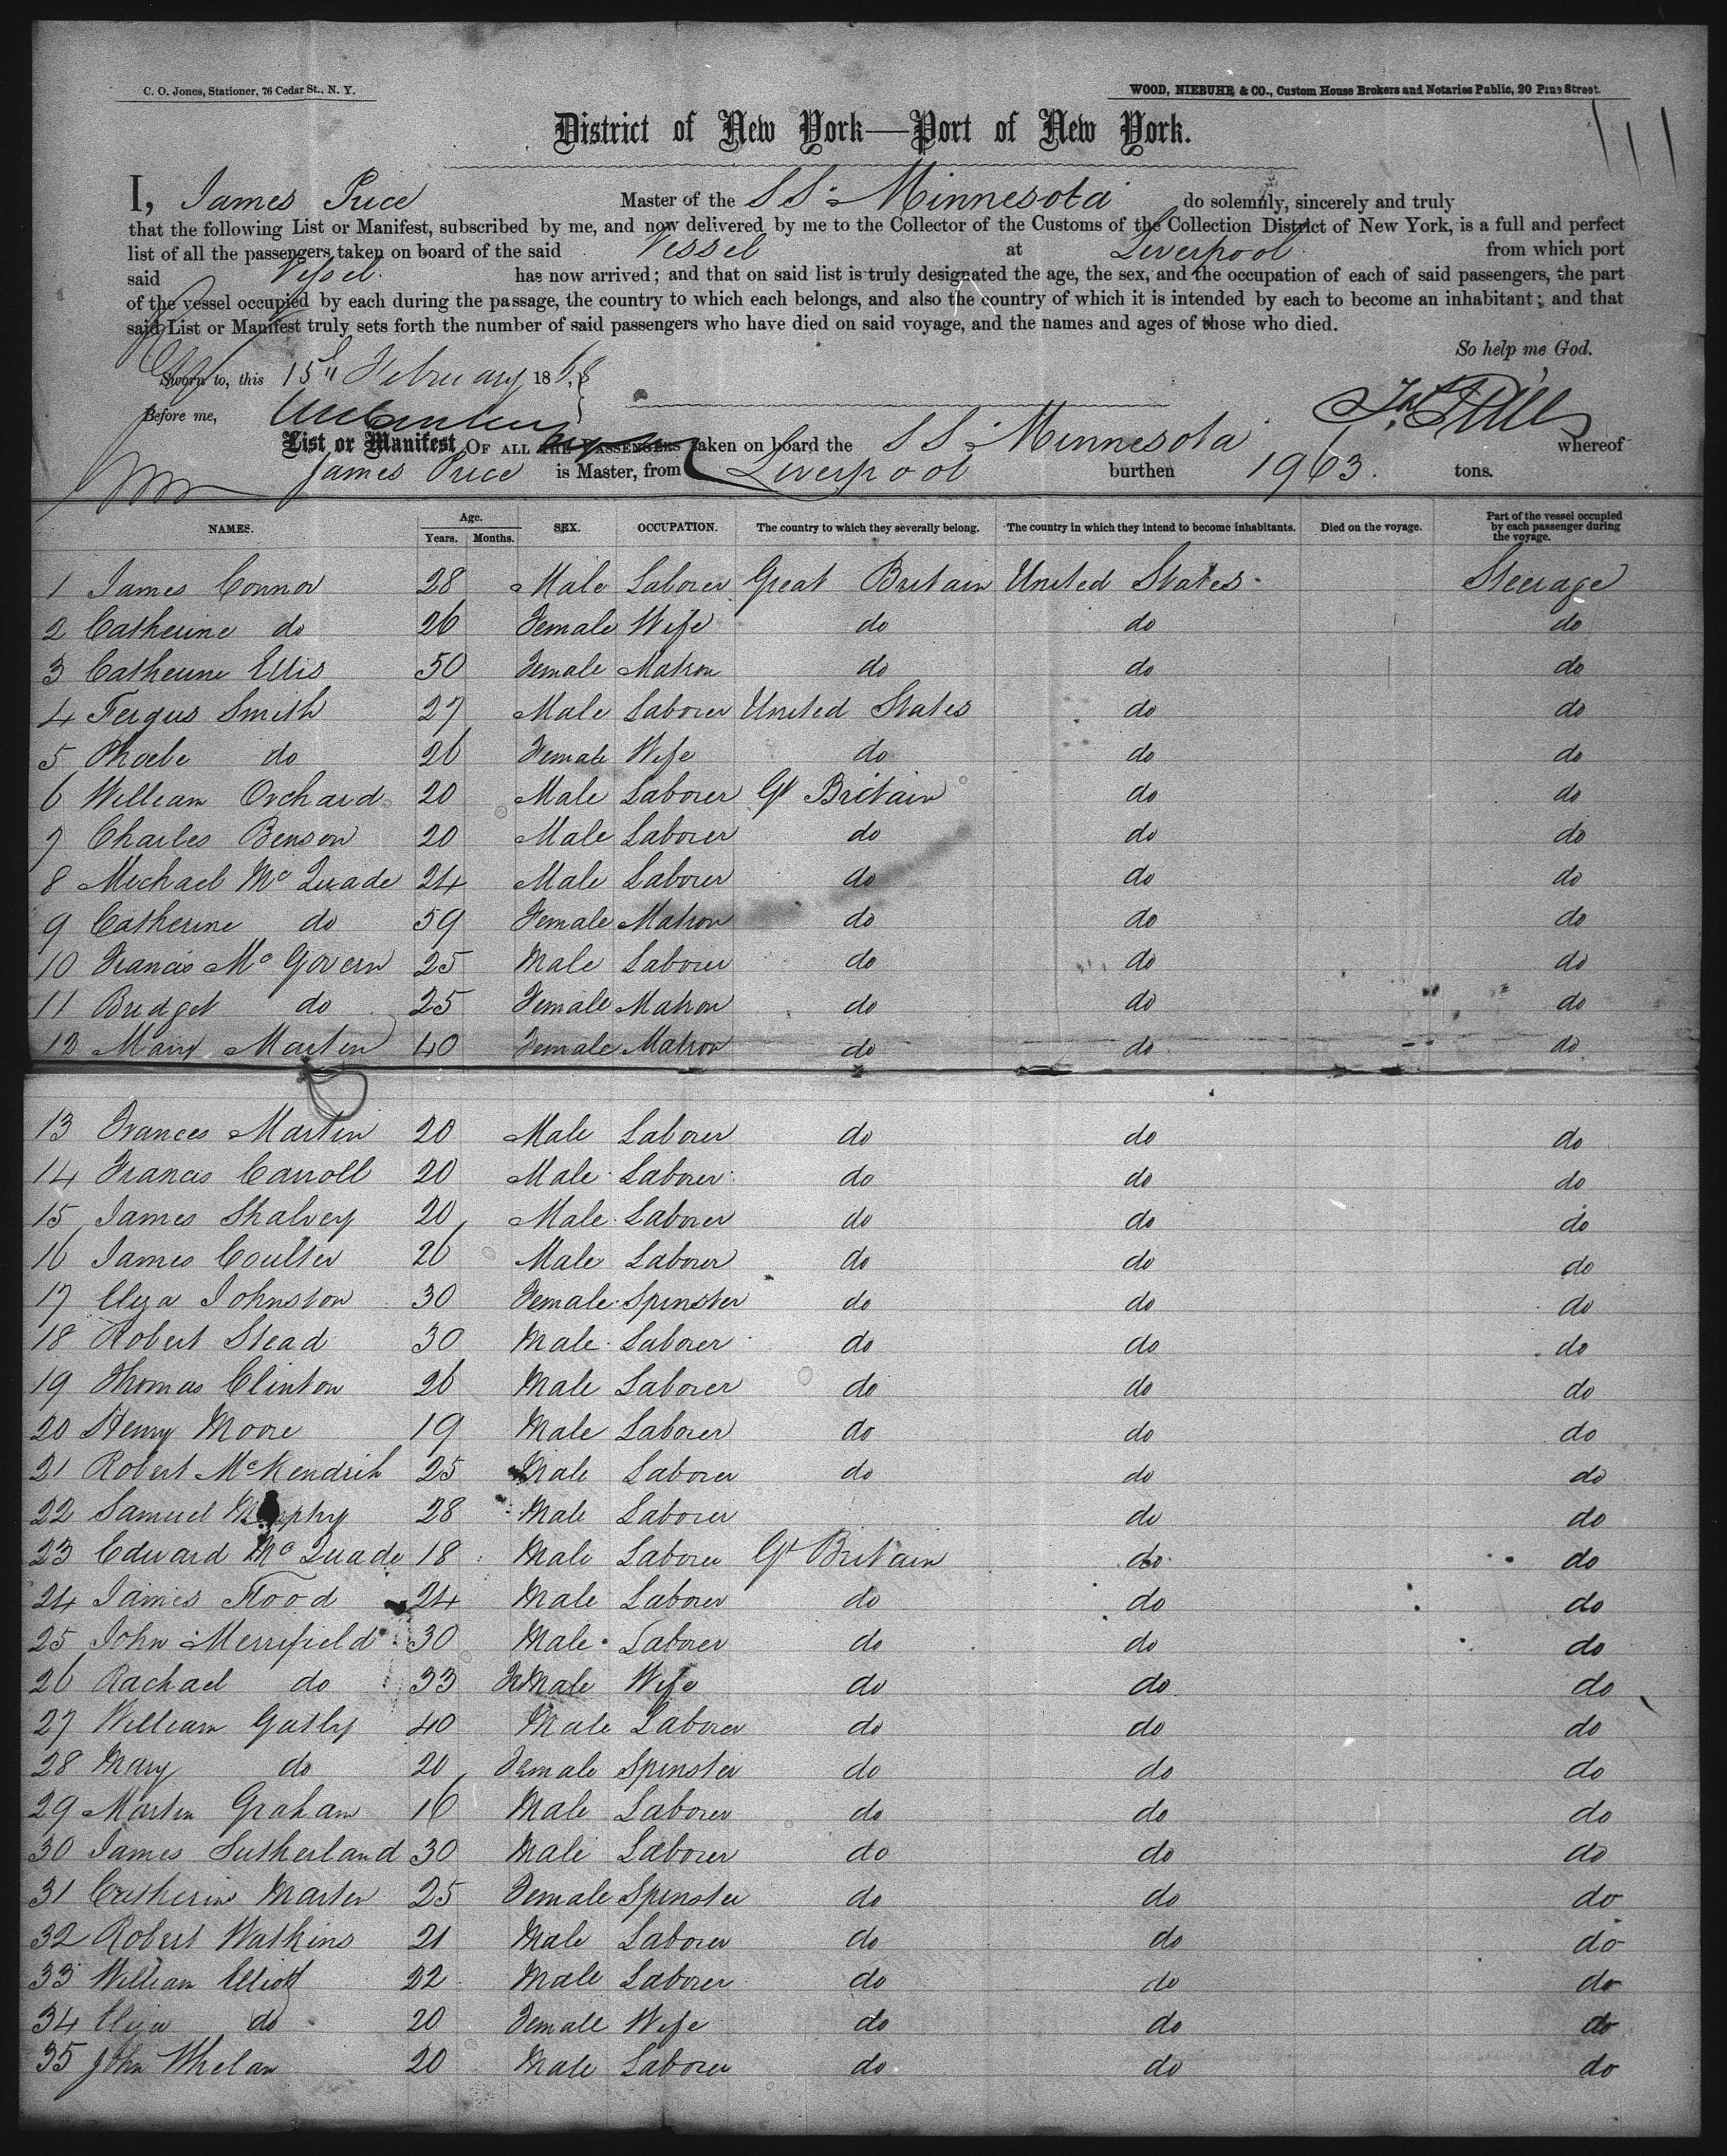 C. O. Jones, Stationer, 76 Cedar St., N. Y.
WOOD, NIEBUHR & CO., Custom House Brokers and Notaries Public, 20 Pine Street.
District of New York—Port of New York.
I, James Price Master of the SS. Minnesota do solemnly, sincerely and truly
that the following List or Manifest, subscribed by me, and now delivered by me to the Collector of the Customs of the Collection District of New York, is a full and perfect
list of all the passengers taken on board of the said Vessel at Liverpool from which port
said Vessel has now arrived; and that on said list is truly designated the age, the sex, and the occupation of each of said passengers, the part
of the vessel occupied by each during the passage, the country to which each belongs, and also the country of which it is intended by each to become an inhabitant; and that
said List or Manifest truly sets forth the number of said passengers who have died on said voyage, and the names and ages of those who died.
So help me God.
Sworn to, this 15th February 1868
Before me,
List or Manifest OF ALL THE PASSENGERS taken on board the SS. Minnesota whereof
James Price is Master, from Liverpool burthen 1963. tons.
NAMES. Age. Years. Months. SEX. OCCUPATION. The country to which they severally belong. The country in which they intend to become inhabitants. Died on the voyage. Part of the vessel occupied by each passenger during the voyage.
1 James Connor 28 Male Laborer Great Britain United States Steerage
2 Catherine do 26 Female Wife do do do
3 Catherine Ellis 50 Female Matron do do do
4 Fergus Smith 27 Male Laborer United States do do
5 Phoebe do 26 Female Wife do do do
6 William Orchard 20 Male Laborer Gt Britain do do
7 Charles Benson 20 Male Laborer do do do
8 Michael Mc Quade 24 Male Laborer do do do
9 Catherine do 59 Female Matron do do do
10 Francis Mc Govern 25 Male Laborer do do do
11 Bridget do 25 Female Matron do do do
12 Mary Martin 40 Female Matron do do do
13 Frances Martin 20 Male Laborer do do do
14 Francis Carroll 20 Male Laborer do do do
15 James Shalvey 20 Male Laborer do do do
16 James Coulter 26 Male Laborer do do do
17 Eliza Johnston 30 Female Spinster do do do
18 Robert Stead 30 Male Laborer do do do
19 Thomas Clinton 26 Male Laborer do do do
20 Henry Moore 19 Male Laborer do do do
21 Robert McKendrik 25 Male Laborer do do do
22 Samuel Murphy 28 Male Laborer do do
23 Edward Mc Quade 18 Male Laborer Gt Britain do do
24 James Flood 24 Male Laborer do do do
25 John Merrifield 30 Male Laborer do do do
26 Rachael do 33 FeMale Wife do do do
27 William Gatly 40 Male Laborer do do do
28 Mary do 20 Female Spinster do do do
29 Martin Graham 16 Male Laborer do do do
30 James Sutherland 30 Male Laborer do do do
31 Catherin Marten 25 Female Spinster do do do
32 Robert Watkins 21 Male Laborer do do do
33 William Elliott 22 Male Laborer do do do
34 Eliza do 20 Female Wife do do do
35 John Whelan 20 Male Laborer do do do